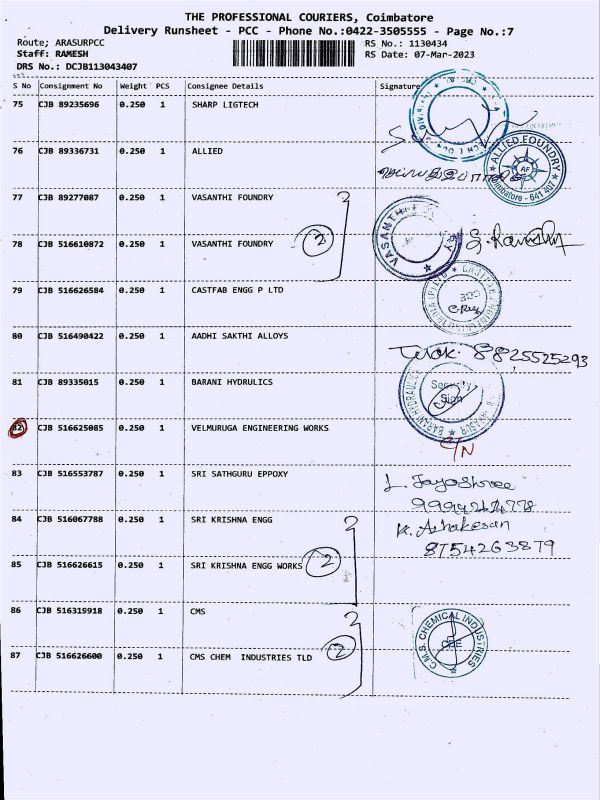 THE PROFESSIONAL COURIERS, Coimbatore
Delivery Runsheet - PCC - Phone No.:0422-3505555 - Page No.:7
Route; ARASURPCC RS No.: 1130434
Staff: RAMESH RS Date: 07-Mar-2023
DRS No.: DCJB113043407
S No Consignment No Weight PCS Consignee Details Signature
75 CJB 89235696 0.250 1 SHARP LIGTECH
76 CJB 89336731 0.250 1 ALLIED
ALLIED FOUNDRY
AF
Coimbatore - 641 407
77 CJB 89277087 0.250 1 VASANTHI FOUNDRY
2
78 CJB 516610872 0.250 1 VASANTHI FOUNDRY
VASANTHI
79 CJB 516626584 0.250 1 CASTFAB ENGG P LTD
80 CJB 516490422 0.250 1 AADHI SAKTHI ALLOYS
8825525293
81 CJB 89335015 0.250 1 BARANI HYDRULICS
BARANI HYDRAULICS
Security
Sign
82 CJB 516625085 0.250 1 VELMURUGA ENGINEERING WORKS
C/N
83 CJB 516553787 0.250 1 SRI SATHGURU EPPOXY
L. Jayashree
84 CJB 516067788 0.250 1 SRI KRISHNA ENGG
8754263879
85 CJB 516626615 0.250 1 SRI KRISHNA ENGG WORKS
2
86 CJB 516319918 0.250 1 CMS
C.M.S. CHEMICAL INDUSTRIES
CBE
87 CJB 516626600 0.250 1 CMS CHEM INDUSTRIES TLD
2